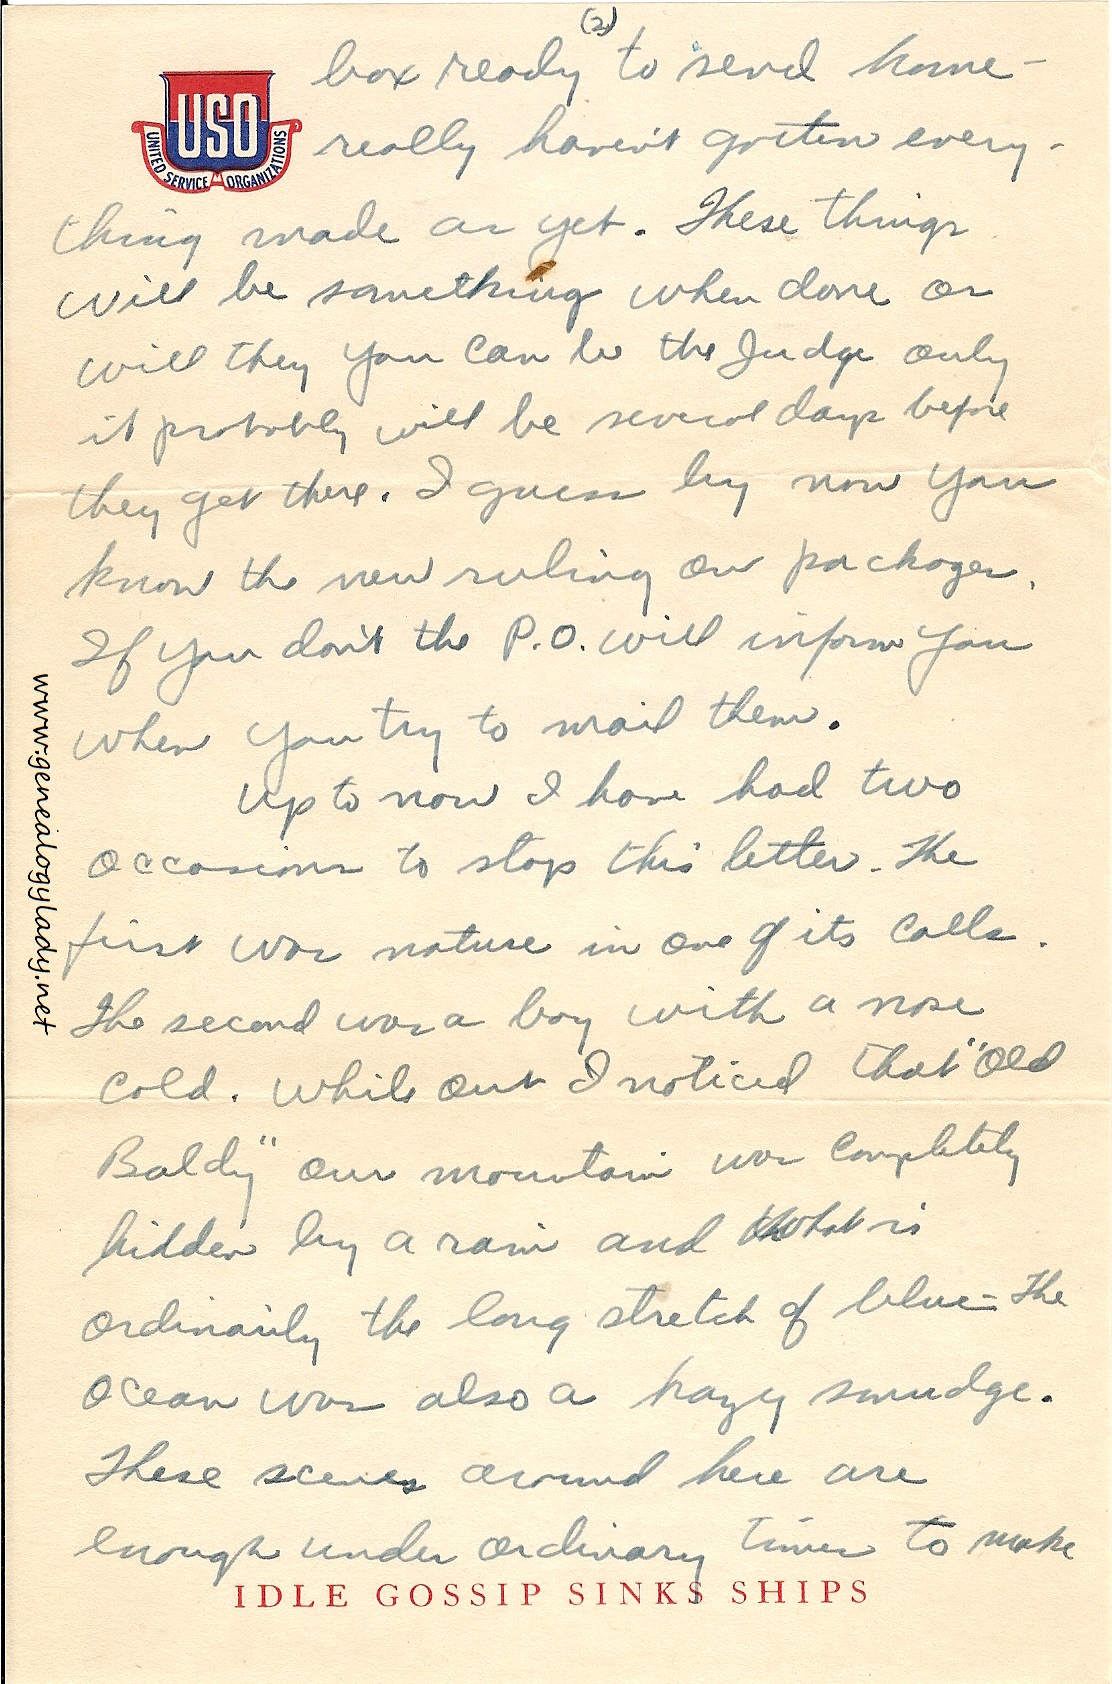 (2)
box ready to send home –
really haven't gotten every-
thing made as yet. These things
will be something when done or
will they you can be the Judge only
it probably will be several days before
they get there. I guess by now you
know the new ruling on packages.
If you don't the P.O. will inform you
when you try to mail them.
Up to now I have had two
occasions to stop this letter. The
first was nature in one of its calls.
The second was a boy with a nose
cold. While out I noticed that "Old
Baldy" our mountain was completely
hidden by a rain and what is
ordinarily the long stretch of blue – the
ocean was also a hazy smudge.
These scenes around here are
enough under ordinary times to make
IDLE GOSSIP SINKS SHIPS
USO
UNITED SERVICE ORGANIZATIONS
www.genealogylady.net